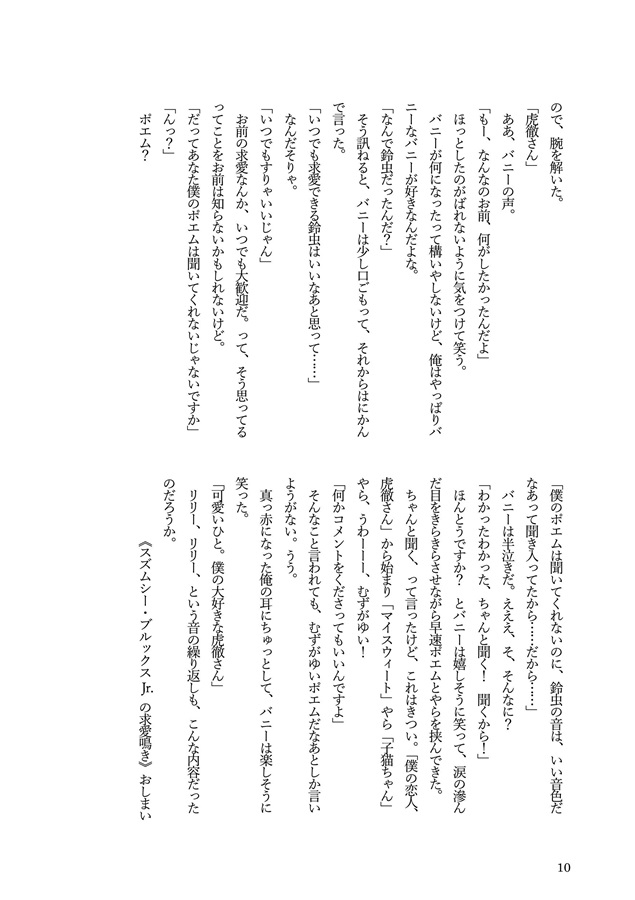 ので、腕を解いた。
「虎徹さん」
ああ、バニーの声。
「もー、なんなのお前、何がしたかったんだよ」
ほっとしたのがばれないように気をつけて笑う。
バニーが何になったって構いやしないけど、俺はやっぱりバ
ニーなバニーが好きなんだよな。
「なんで鈴虫だったんだ？」
そう訊ねると、バニーは少し口ごもって、それからはにかん
で言った。
「いつでも求愛できる鈴虫はいいなあと思って……」
なんだそりゃ。
「いつでもすりゃいいじゃん」
お前の求愛なんか、いつでも大歓迎だ。って、そう思ってる
ってことをお前は知らないかもしれないけど。
「だってあなた僕のポエムは聞いてくれないじゃないですか」
「んっ？」
ポエム？
「僕のポエムは聞いてくれないのに、鈴虫の音は、いい音色だ
なあって聞き入ってたから……だから……」
バニーは半泣きだ。えええ、そ、そんなに？
「わかったわかった、ちゃんと聞く！　聞くから！」
ほんとうですか？　とバニーは嬉しそうに笑って、涙の滲ん
だ目をきらきらさせながら早速ポエムとやらを挟んできた。
ちゃんと聞く、って言ったけど、これはきつい。「僕の恋人、
虎徹さん」から始まり「マイスウィート」やら「子猫ちゃん」
やら、うわーーー、むずがゆい！
「何かコメントをくださってもいいんですよ」
そんなこと言われても、むずがゆいポエムだなあとしか言い
ようがない。うう。
真っ赤になった俺の耳にちゅっとして、バニーは楽しそうに
笑った。
「可愛いひと。僕の大好きな虎徹さん」
リリー、リリー、という音の繰り返しも、こんな内容だった
のだろうか。
《スズムシー・ブルックス Jr. の求愛鳴き》おしまい
10